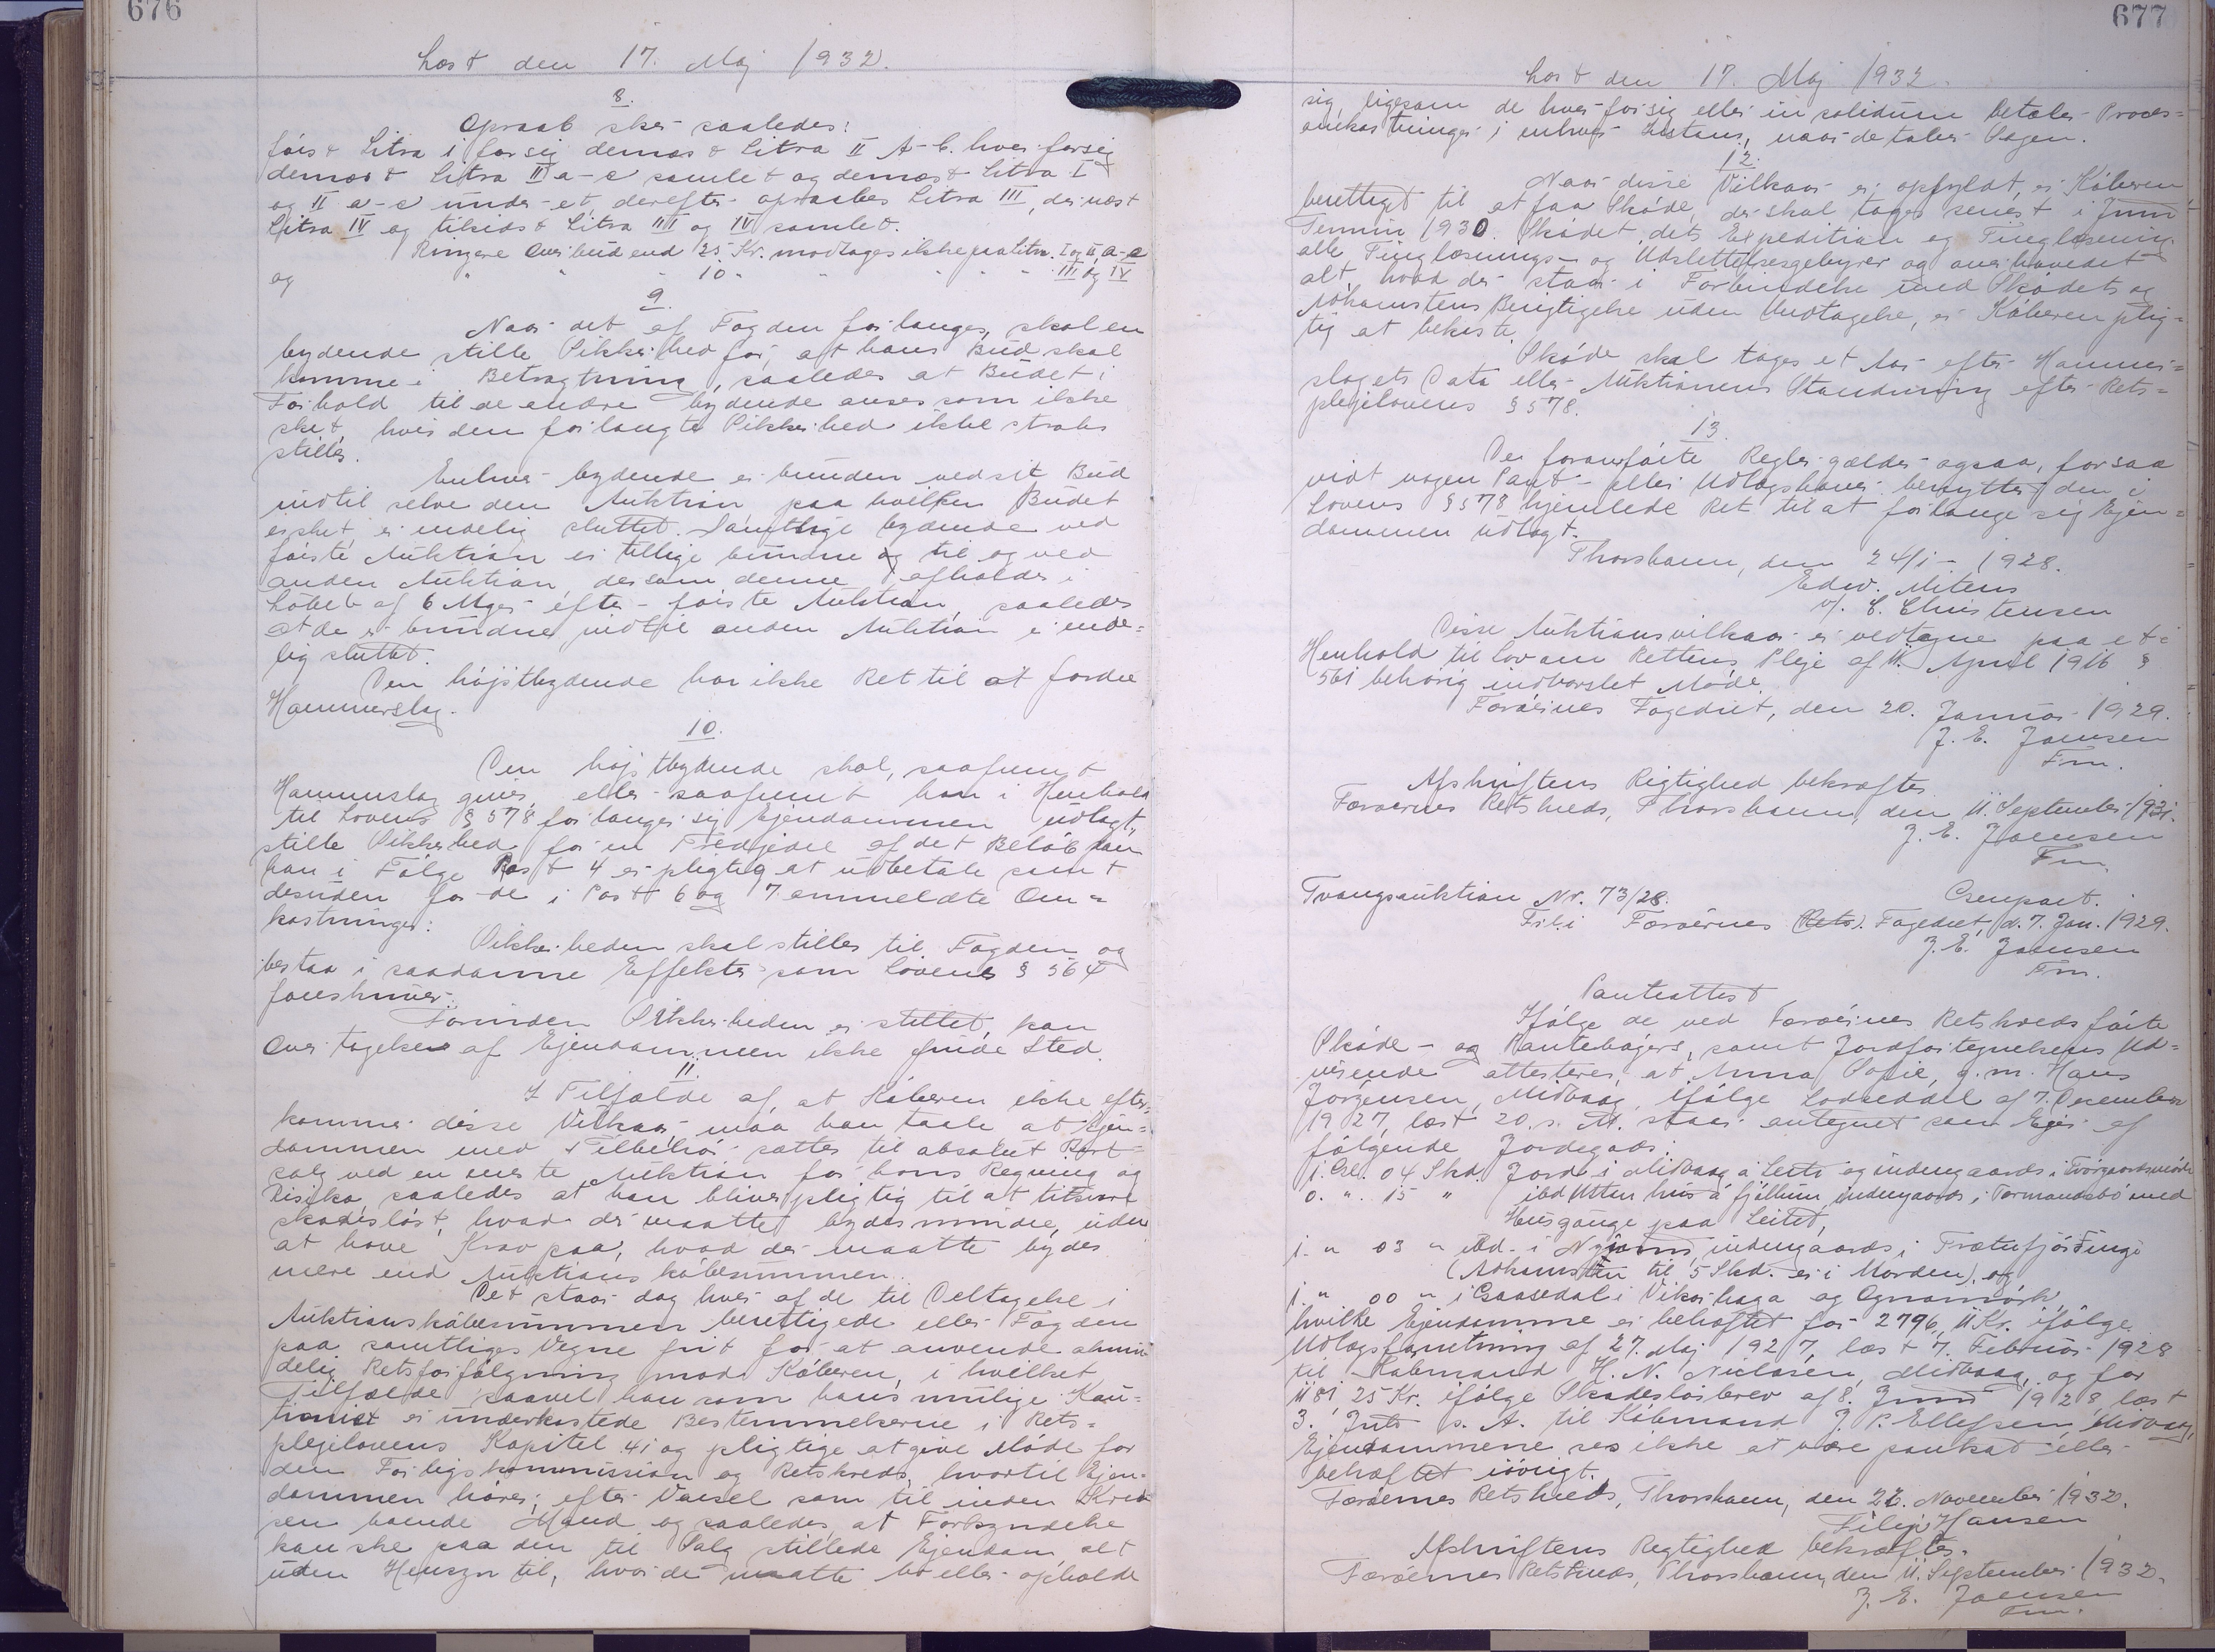 676
Læst den 17. Maj 1932.
8.
Opraab sker saaledes:
først Litra I for sig dernæst Litra II A-C. hver for sig
dernæst Litra II a-c samlet og dernæst Litra I
og II a-c under et derefter opraabes Litra III, dernæst
Litra IV og tilsidst Litra III og IV samlet.
Ringere Overbud end 25 Kr. modtages ikke paa Litra. I og II, a-c
og " " " 10 " " " " " III og IV
9.
Naar det af Fogden forlanges, skal en
bydende stille Sikkerhed for, at hans Bud skal
komme i Betragtning, saaledes at Budet i
Forhold til de andre bydende anses som ikke
sket, hvis den forlangte Sikkerhed ikke straks
stilles.
Enhver bydende er bunden ved sit Bud
indtil selve den Auktion paa hvilken Budet
er sket, er endelig sluttet. Samtlige bydende ved
første Auktion er tillige bundne og til og ved
anden Auktion, dersom denne afholdes i
Løbet af 6 Uger efter første Auktion, saaledes
at de er bundne indtil anden Auktion er ende=
lig sluttet.
Den højstbydende har ikke Ret til at fordre
Hammerslag.
10.
Den højstbydende skal, saafremt
Hammerslag gives eller saafremt han i Henhold
til Lovens § 578 forlanger sig Ejendommen udlagt,
stille Sikkerhed for en Tredjedel af det Beløb som
han i Følge Post 4 er pligtig at udbetale samt
desuden for de i Post 6 og 7 ommeldte Om=
kostninger:
Sikkerheden skal stilles til Fogden og
bestaa i saadanne Effekter som Lovens § 564
foreskriver.
Forinden Sikkerheden er stillet, kan
Overtagelse af Ejendommen ikke finde Sted.
11.
I Tilfælde af, at Køberen ikke efter=
kommer disse Vilkaar maa han taale at Ejen=
dommen med Tilbehør sættes til absolut Bort=
salg ved en eneste Auktion for hans Regning og
Risiko, saaledes at han bliver pligtig til at tilsvare
skadesløst, hvad der maatte bydes mindre, uden
at have Krav paa, hvad der maatte bydes
mere end Auktionskøbesummen.
Det staar dog hver af de til Deltagelse i
Auktionskøbesummen berettigede eller Fogden
paa samtliges Vegne frit for at anvende almin
delig Retsforfølgning mod Køberen, i hvilket
Tilfælde saavel han som hans mulige Kau=
tionist er underkastede Bestemmelserne i Rets=
plejelovens Kapitel 41 og pligtige at give Møde for
den Forligskommission og Retskreds, hvortil Ejen=
dommen hører, efter Varsel som til inden Kred
sen boende Mand og saaledes, at Forkyndelse
kan ske paa den til Salg stillede Ejendom alt
uden Hensyn til, hvor de maatte bo eller opholde
677
Læst den 17. Maj 1932.
sig, ligesom de hver for sig eller in solidum betaler Proces=
omkostninger i enhver Instans, naar de taber Sagen.
12.
Naar disse Vilkaar er opfyldt, er Køberen
berettiget til at faa Skøde, der skal tages senest i Juni
Termin 1930. Skødet, dets Expedition og Tinglæsning
alle Tinglæsnings- og Udslettelsesgebyrer og overhovedet
alt, hvad der staar i Forbindelse med Skødets og
Adkomstens Berigtigelse uden Undtagelse, er Køberen plig=
tig at bekoste.
Skøde skal tages et Aar efter Hammer=
slagets Dato eller Auktionens Slutning efter Rets=
plejelovens § 578.
13.
De foranførte Regler gælder ogsaa, forsaa
vidt nogen Pant- eller Udlægshaver benytter den i
Lovens § 578 hjemlede Ret til at forlange sig Ejen=
dommen udlagt.
Thorshavn, den 24/1 - 1928.
Edw. Mitens
v/. C. Christensen
Disse Auktionsvilkaar er vedtagne paa et i
Henhold til Lov om Rettens Pleje af 11. April 1916 §
561 behørig indvarslet Møde.
Færøernes Fogedret, den 20. Januar 1929.
J. E. Joensen
Fm.
Afskriftens Rigtighed bekræftes
Færøernes Retskreds, Thorshavn, den 11. September 1931.
J. E. Joensen
Fm.
Tvangsauktion Nr. 73/28. Genpart.
Fr. i Færøernes (Rets). Fogedret, d. 7. Jan. 1929.
J. E. Joensen
Fm.
Panteattest
Ifølge de ved Færøernes Retskreds førte
Skøde- og Pantebøgers, samt Jordfortegnelsens Ud=
visende attesteres, at Anna Sofie, g. m. Hans
Jørgensen, Midvaag, ifølge Lodseddel af 7. December
1927, læst 20. s. M. staar antegnet som Ejer af
følgende Jordegods:
1. Gl. 04 Skd. Jord i Midvaag á Leiti og indengaards i
0. " 15 " ibd Uttan hús á fjøllum, indengaards i Tormansbø med
Husgange paa Leitet,
1. " 03 " ibd. i indengaards i Trætufjórdingi
(Adkomsten til 5 Skd. er i Uorden), og
1. " 00 " i Gaasedal i Vikarhaga og Ognamørk
hvilke Ejendomme er behæftet for 2796, 11 Kr. ifølge
Udlægsforretning af 27. Maj 1927, læst 7. Februar 1928
til Købmand H. N. Niclasen, Midvaag, og for
1181, 25 Kr. ifølge Skadesløsbrev af 8. Juni 1928, læst
3. Juli s. A. til Købmand J. P. Ellefsen, Midvaag,
Ejendommene ses ikke at være pantsat eller
behæftet iøvrigt.
Færøernes Retskreds, Thorshavn, den 26. November 1932.
Filip Hansen
Afskriftens Rigtighed bekræftes.
Færøernes Retskreds, Thorshavn, den 11. September 1932.
J. E. Joensen
Fm.